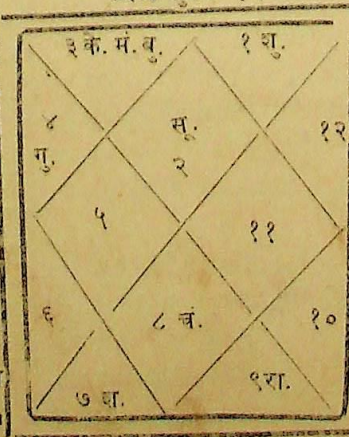 ३ के. मं. बु.
१ शु.
४
गु.
सू.
२
१२
५
११
६
८ चं.
१०
७ श.
९ रा.